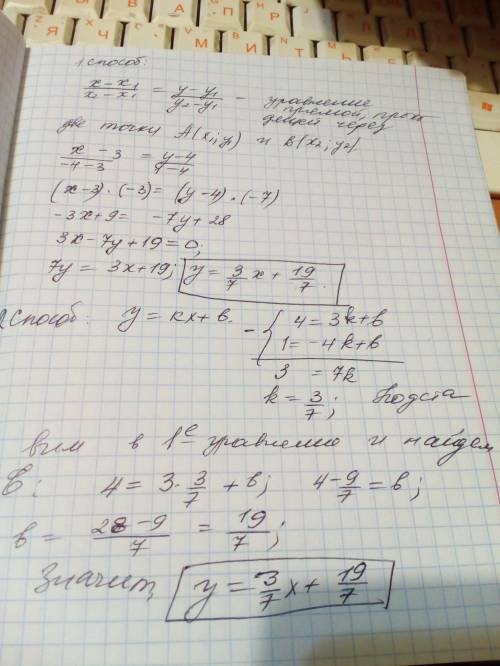 1 способ:
x-x₁/x₂-x₁ = y-y₁/y₂-y₁ - уравнение
прямой, прохо
дящей через
две точки A(x₁;y₁) и B(x₂;y₂)
x-3/-4-3 = y-4/1-4
(x-3)·(-3)=(y-4)·(-7)
-3x+9= -7y+28
3x-7y+19=0;
7y= 3x+19; y= 3/7 x + 19/7.
2 способ: y=kx+b. - { 4=3k+b
1=-4k+b
3 = 7k
k= 3/7; Подста
вим в 1е уравнение и найдем
b: 4= 3·3/7 +b; 4-9/7=b;
b= 28-9/7 = 19/7;
Значит, y= 3/7x+ 19/7